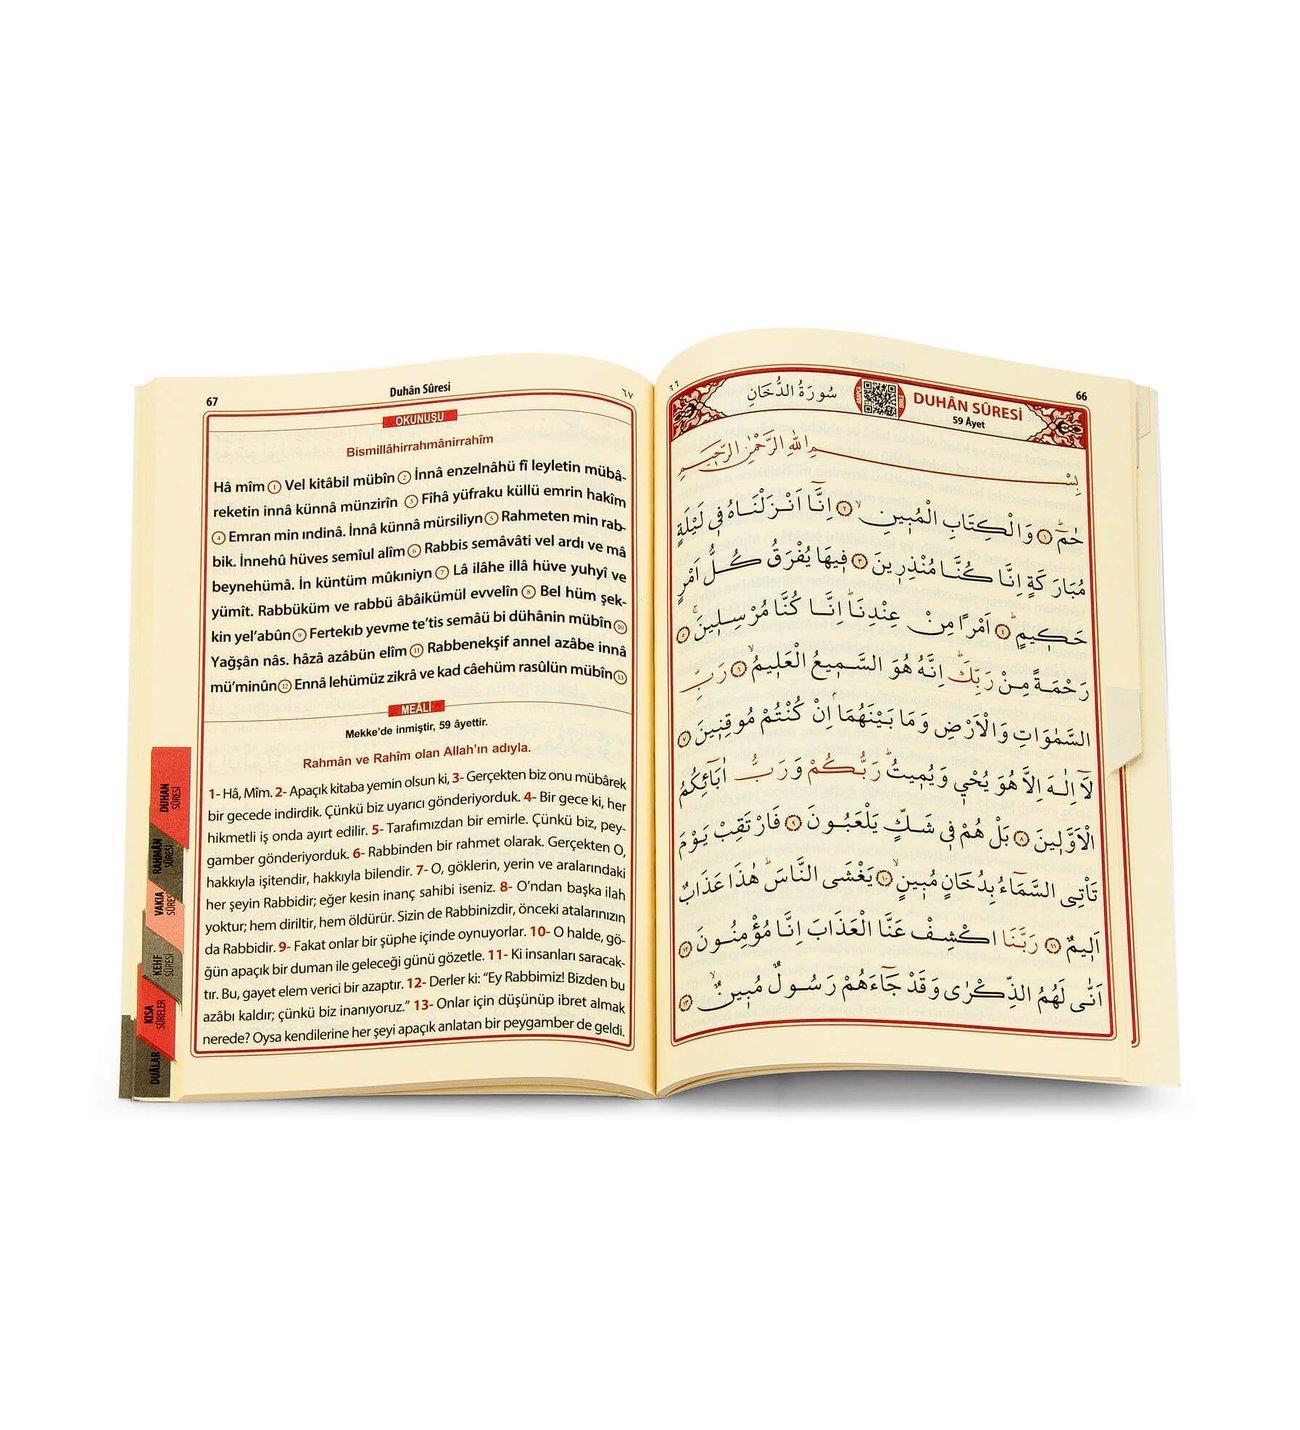 67
Duhân Sûresi
٦٧
OKUNUŞU
Bismillâhirrahmânirrahîm
Hâ mîm ① Vel kitâbil mübîn ② İnnâ enzelnâhü fî leyletin mübâ-
reketin innâ künnâ münzirîn ③ Fîhâ yüfraku küllü emrin hakîm
④ Emran min ındinâ. İnnâ künnâ mürsiliyn ⑤ Rahmeten min rab-
bik. İnnehû hüves semîul alîm ⑥ Rabbis semâvâti vel ardı ve mâ
beynehümâ. İn küntüm mûkıniyn ⑦ Lâ ilâhe illâ hüve yuhyî ve
yümît. Rabbüküm ve rabbü âbâikümül evvelîn ⑧ Bel hüm şek-
kin yel’abûn ⑨ Fertekıb yevme te’tis semâü bi dühânin mübîn ⑩
Yağşân nâs. hâzâ azâbün elîm ⑪ Rabbenekşif annel azâbe innâ
mü’minûn ⑫ Ennâ lehümüz zikrâ ve kad câehüm rasûlün mübîn ⑬
MEALİ
Mekke’de inmiştir, 59 âyettir.
Rahmân ve Rahîm olan Allah’ın adıyla.
1- Hâ, Mîm. 2- Apaçık kitaba yemin olsun ki, 3- Gerçekten biz onu mübârek
bir gecede indirdik. Çünkü biz uyarıcı gönderiyorduk. 4- Bir gece ki, her
hikmetli iş onda ayırt edilir. 5- Tarafımızdan bir emirle. Çünkü biz, pey-
gamber gönderiyorduk. 6- Rabbinden bir rahmet olarak. Gerçekten O,
hakkıyla işitendir, hakkıyla bilendir. 7- O, göklerin, yerin ve aralarındaki
her şeyin Rabbidir; eğer kesin inanç sahibi iseniz. 8- O’ndan başka ilah
yoktur; hem diriltir, hem öldürür. Sizin de Rabbinizdir, önceki atalarınızın
da Rabbidir. 9- Fakat onlar bir şüphe içinde oynuyorlar. 10- O halde, gö-
ğün apaçık bir duman ile geleceği günü gözetle. 11- Ki insanları saracak-
tır. Bu, gayet elem verici bir azaptır. 12- Derler ki: “Ey Rabbimiz! Bizden bu
azâbı kaldır; çünkü biz inanıyoruz.” 13- Onlar için düşünüp ibret almak
nerede? Oysa kendilerine her şeyi apaçık anlatan bir peygamber de geldi.
DUHAN
SÛRESİ
RAHMÂN
SÛRESİ
VAKIA
SÛRESİ
KEHF
SÛRESİ
KISA
SÛRELER
DUÂLAR
٦٦
66
سُورَةُ الدُّخَانِ
DUHÂN SÛRESİ
59 Âyet
بِسْمِ اللهِ الرَّحْمٰنِ الرَّحِيمِ
حٰمٓۜ ﴿١﴾ وَالْكِتَابِ الْمُبٖينِۙ ﴿٢﴾ اِنَّٓا اَنْزَلْنَاهُ فٖى لَيْلَةٍ
مُبَارَكَةٍ اِنَّا كُنَّا مُنْذِرٖينَ ﴿٣﴾ فٖيهَا يُفْرَقُ كُلُّ اَمْرٍ
حَكٖيمٍۜ ﴿٤﴾ اَمْرًا مِنْ عِنْدِنَاۜ اِنَّا كُنَّا مُرْسِلٖينَۚ ﴿٥﴾
رَحْمَةً مِنْ رَبِّكَۜ اِنَّهُ هُوَ السَّمٖيعُ الْعَلٖيمُۙ ﴿٦﴾ رَبِّ
السَّمٰوَاتِ وَالْاَرْضِ وَمَا بَيْنَهُمَاۢ اِنْ كُنْتُمْ مُوقِنٖينَ ﴿٧﴾
لَٓا اِلٰهَ اِلَّا هُوَ يُحْيٖ وَيُمٖيتُۜ رَبُّكُمْ وَرَبُّ اٰبَٓائِكُمُ
الْاَوَّلٖينَ ﴿٨﴾ بَلْ هُمْ فٖى شَكٍّ يَلْعَبُونَ ﴿٩﴾ فَارْتَقِبْ يَوْمَ
تَأْتِى السَّمَٓاءُ بِدُخَانٍ مُبٖينٍۙ ﴿١٠﴾ يَغْشَى النَّاسَۜ هٰذَا عَذَابٌ
اَلٖيمٌ ﴿١١﴾ رَبَّنَا اكْشِفْ عَنَّا الْعَذَابَ اِنَّا مُؤْمِنُونَ ﴿١٢﴾
اَنّٰى لَهُمُ الذِّكْرٰى وَقَدْ جَٓاءَهُمْ رَسُولٌ مُبٖينٌۙ ﴿١٣﴾